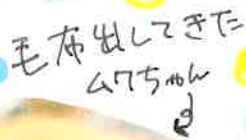 毛布出してきた
ムクちゃん